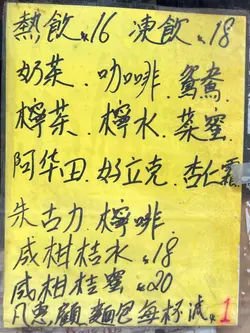 熱飲 $16 凍飲 $18
奶茶. 咖啡. 鴛鴦
檸茶. 檸水. 菜蜜
阿华田. 好立克. 杏仁霜
朱古力. 檸啡.
咸柑桔水 $18
咸柑桔蜜 $20
凡惠顧麵包每杯減$1